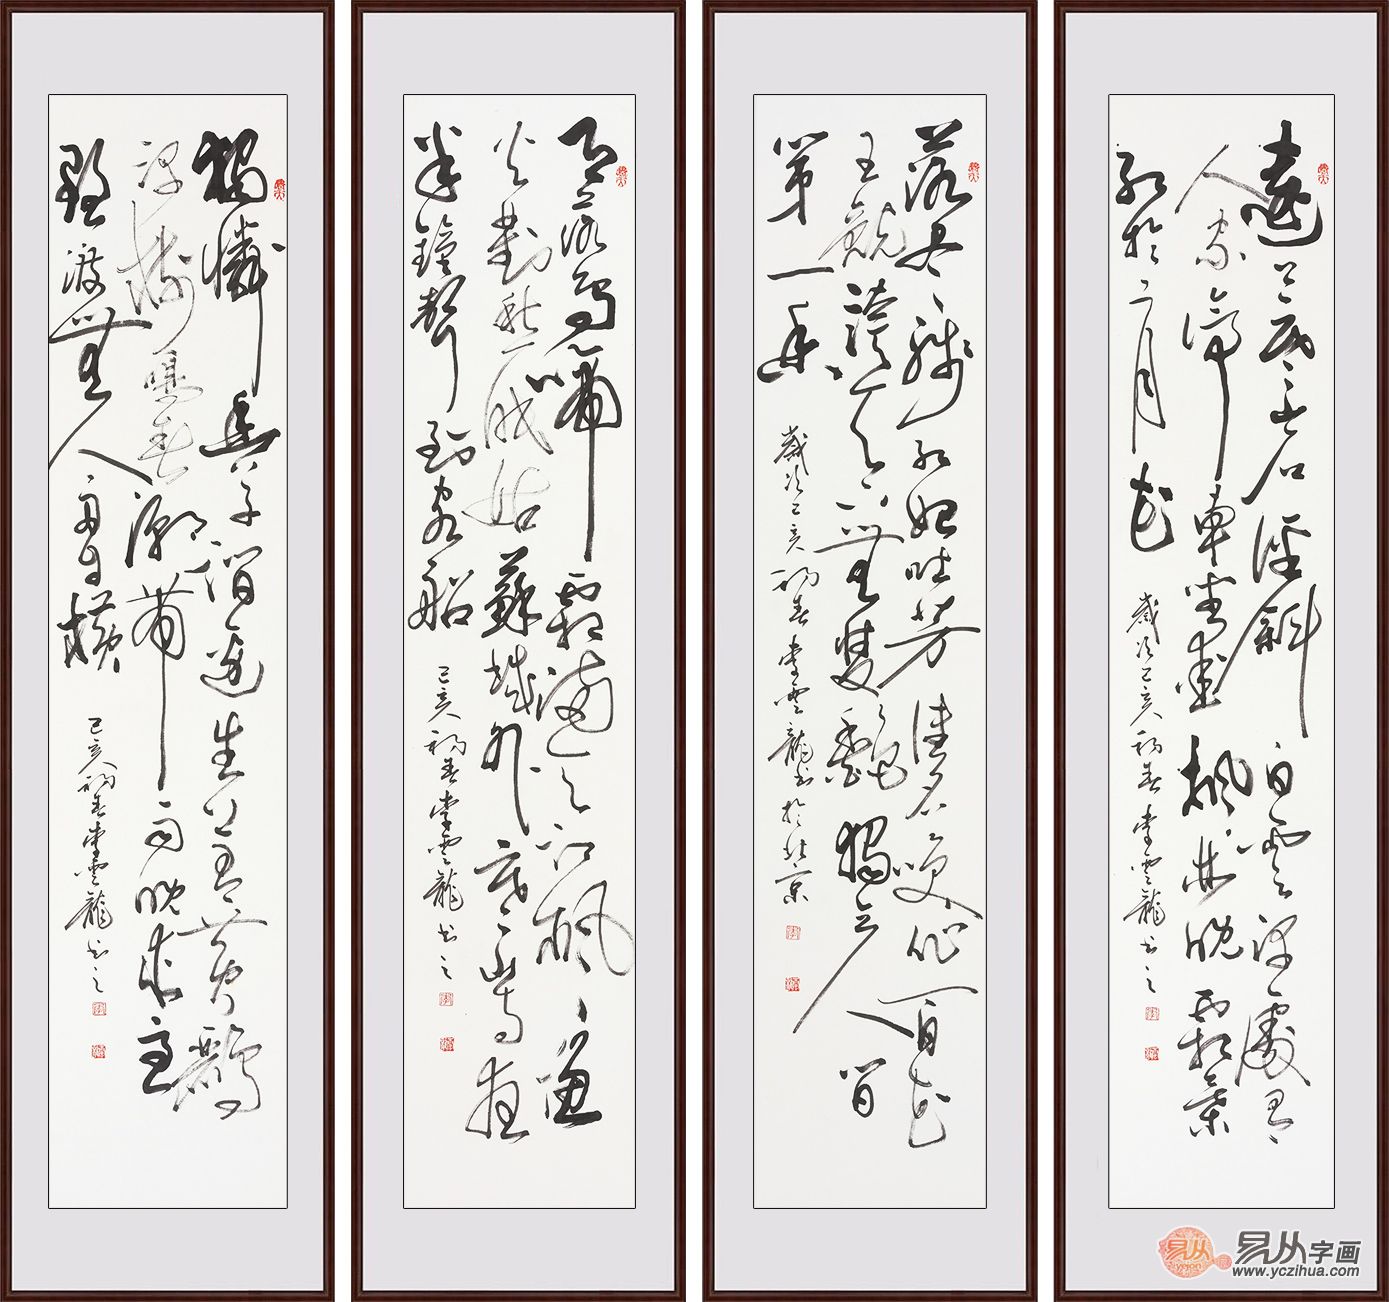 遠上寒山石徑斜白雲深處有
人家停車坐愛楓林晚霜葉
紅於二月花
歲次己亥初春李雲龍書之
落盡殘紅始吐芳佳名喚作百花
王競誇天下無雙艷獨立人間
第一香
歲次己亥初春李雲龍書於北京
月落烏啼霜滿天江楓漁
火對愁眠姑蘇城外寒山寺夜
半鐘聲到客船
己亥初春李雲龍書之
獨憐幽草澗邊生上有黃鸝
深樹鳴春潮帶雨晚來急
野渡無人舟自橫
己亥初春李雲龍書之
易从字画
www.yczihua.com